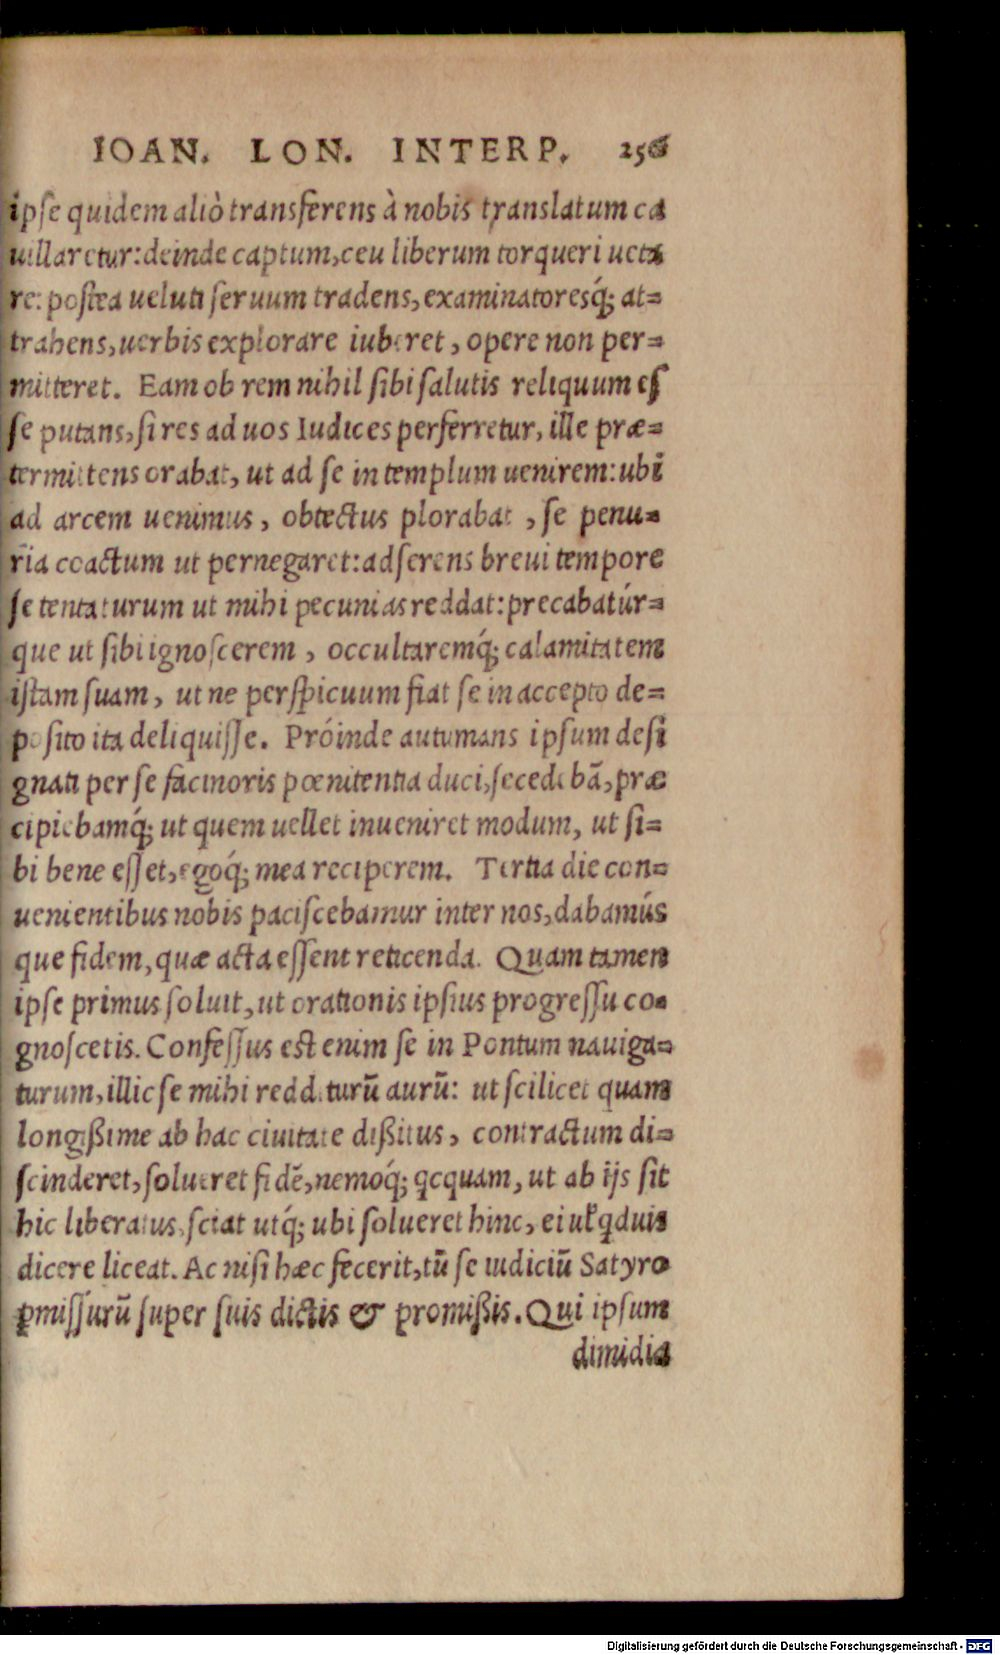 IOAN. LON. INTERP. 256
ipse quidem aliò transferens à nobis translatum ca
uillaretur: deinde captum, ceu liberum torqueri ueta
re: postea ueluti seruum tradens, examinatoresq́; at=
trahens, uerbis explorare iuberet, opere non per=
mitteret. Eam ob rem nihil sibi salutis reliquum es
se putans, si res ad uos Iudices perferretur, ille præ=
termittens orabat, ut ad se in templum uenirem: ubi
ad arcem uenimus, obtectus plorabat, se penu=
ria coactum ut pernegaret: adserens breui tempore
se tentaturum ut mihi pecunias reddat: precabatúr=
que ut sibi ignoscerem, occultaremq́; calamitatem
istam suam, ut ne perspicuum fiat se in accepto de=
posito ita deliquisse. Próinde autumans ipsum desi
gnati per se facinoris pœnitentia duci, secedebā, præ
cipiebamq́; ut quem uellet inueniret modum, ut si=
bi bene esset, egoq́; mea reciperem. Tertia die con=
uenientibus nobis paciscebamur inter nos, dabamús
que fidem, quæ acta essent reticenda. Quam tamen
ipse primus soluit, ut orationis ipsius progressu co=
gnoscetis. Confessus est enim se in Pontum nauiga=
turum, illic se mihi redditurū aurū: ut scilicet quam
longißime ab hac ciuitate dißitus, contractum di=
scinderet, solueret fidē, nemoq́; qcquam, ut ab ijs sit
hic liberatus, sciat utq́; ubi solueret hinc, ei ul qduis
dicere liceat. Ac nisi hæc fecerit, tū se iudiciū Satyro
ꝑmissurū super suis dictis & promißis. Qui ipsum
dimidia
Digitalisierung gefördert durch die Deutsche Forschungsgemeinschaft - DFG